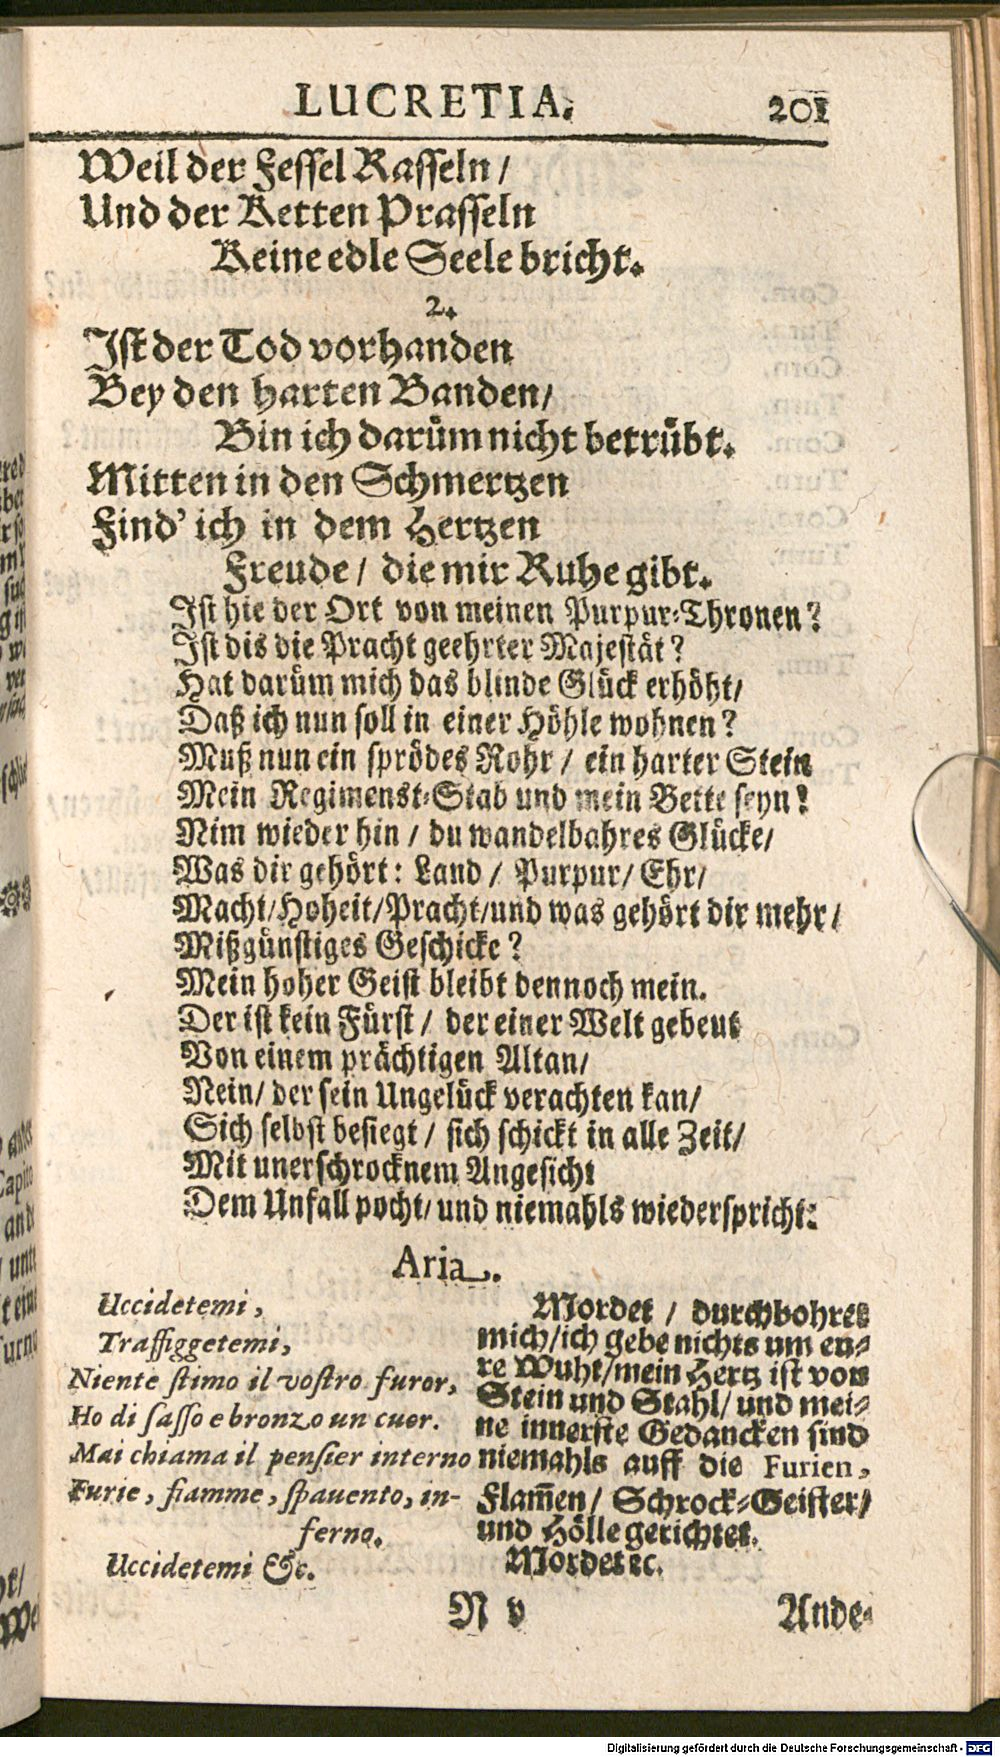 LUCRETIA. 201
Weil der Fessel Rasseln /
Und der Ketten Prasseln
Keine edle Seele bricht.
2.
Ist der Tod vorhanden
Bey den harten Banden/
Bin ich darüm nicht betrübt.
Mitten in den Schmertzen
Find' ich in dem Hertzen
Freude / die mir Ruhe gibt.
Ist hie der Ort von meinen Purpur-Thronen?
Ist dis die Pracht geehrter Majestät?
Hat darüm mich das blinde Glück erhöht/
Daß ich nun soll in einer Höhle wohnen?
Muß nun ein sprödes Rohr / ein harter Stein
Mein Regimenst-Stab und mein Bette seyn!
Nim wieder hin / du wandelbahres Glücke/
Was dir gehört: Land / Purpur/ Ehr/
Macht/Hoheit/Pracht/und was gehört dir mehr/
Mißgünstiges Geschicke?
Mein hoher Geist bleibt dennoch mein.
Der ist kein Fürst / der einer Welt gebeut
Von einem prächtigen Altan/
Nein/ der sein Ungelück verachten kan/
Sich selbst besiegt / sich schickt in alle Zeit/
Mit unerschrocknem Angesicht
Dem Unfall pocht/ und niemahls wiederspricht:
Aria.
Uccidetemi,
Traffiggetemi,
Niente stimo il vostro furor,
Ho di sasso e bronzo un cuor.
Mai chiama il pensier interno
Furie, fiamme, spavento, in-
ferno.
Uccidetemi &c.
Mordet / durchbohret
mich/ich gebe nichts um eu-
re Wuht/mein Hertz ist von
Stein und Stahl/ und mei-
ne innerste Gedancken sind
niemahls auff die Furien,
Flam̄en/ Schrock-Geister/
und Hölle gerichtet.
Mordet ꝛc.
N v Ande-
Digitalisierung gefördert durch die Deutsche Forschungsgemeinschaft - DFG